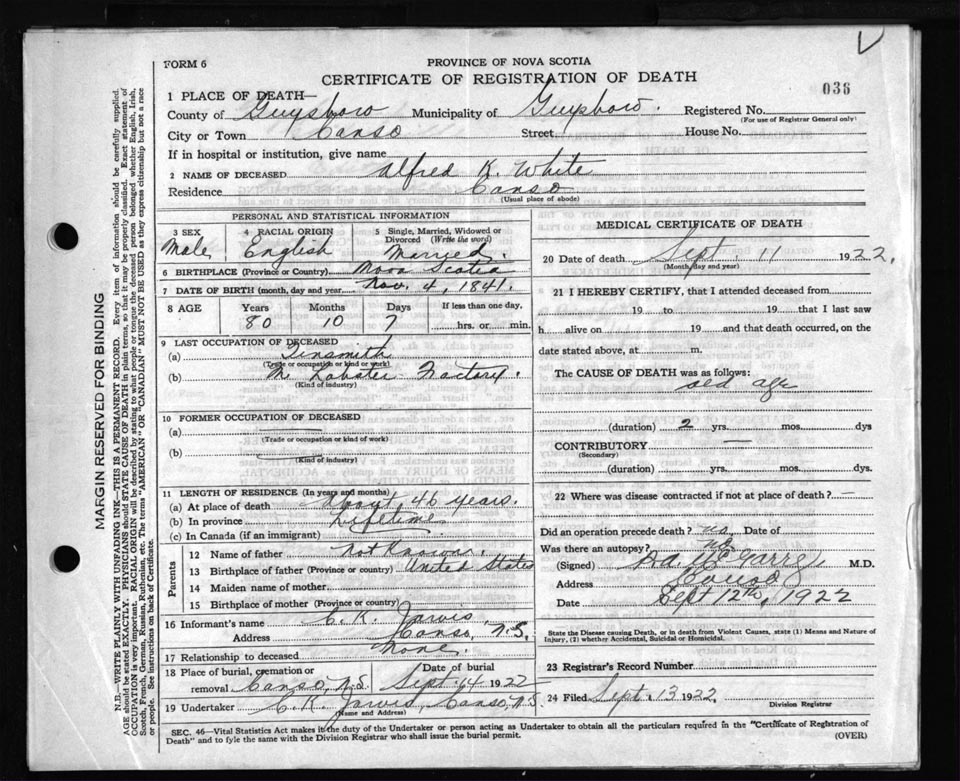 FORM 6
PROVINCE OF NOVA SCOTIA
CERTIFICATE OF REGISTRATION OF DEATH
036
1 PLACE OF DEATH—
County of Guysboro Municipality of Guysboro. Registered No.
(For use of Registrar General only)
City or Town Canso Street House No.
If in hospital or institution, give name
2 NAME OF DECEASED Alfred K. White
Residence Canso
(Usual place of abode)
PERSONAL AND STATISTICAL INFORMATION
3 SEX 4 RACIAL ORIGIN 5 Single, Married, Widowed or Divorced (Write the word)
Male English Married.
6 BIRTHPLACE (Province or Country) Nova Scotia
7 DATE OF BIRTH (month, day and year) Nov. 4, 1841.
8 AGE Years Months Days If less than one day,
80 10 7 hrs. or min.
9 LAST OCCUPATION OF DECEASED
(a) Tinsmith
(Trade or occupation or kind of work)
(b) In Lobster Factory.
(Kind of industry)
10 FORMER OCCUPATION OF DECEASED
(a)
(Trade or occupation or kind of work)
(b)
(Kind of industry)
11 LENGTH OF RESIDENCE (In years and months)
(a) At place of death About 46 years.
(b) In province Lifetime
(c) In Canada (if an immigrant)
Parents
12 Name of father Not Known.
13 Birthplace of father (Province or country) United States
14 Maiden name of mother
15 Birthplace of mother (Province or country)
16 Informant's name C. K. Jarvis
Address Canso, N.S.
17 Relationship to deceased None.
18 Place of burial, cremation or removal Canso, N.S. Date of burial Sept. 14 1922
19 Undertaker C. K. Jarvis, Canso, N.S.
(Name and Address)
MEDICAL CERTIFICATE OF DEATH
20 Date of death Sept. 11 1922.
(Month, day and year)
21 I HEREBY CERTIFY, that I attended deceased from
19 to 19 that I last saw
h alive on 19 and that death occurred, on the
date stated above, at m.
The CAUSE OF DEATH was as follows:
old age
(duration) 2 yrs. mos. dys
CONTRIBUTORY —
(Secondary)
(duration) yrs. mos. dys.
22 Where was disease contracted if not at place of death? —
Did an operation precede death? no Date of
Was there an autopsy? no
(Signed) M.D.
Address Canso
Date Sept 12th, 1922
State the Disease causing Death, or in death from Violent Causes, state (1) Means and Nature of Injury, (2) whether Accidental, Suicidal or Homicidal.
23 Registrar's Record Number
24 Filed Sept. 13 1922.
Division Registrar
SEC. 46—Vital Statistics Act makes it the duty of the Undertaker or person acting as Undertaker to obtain all the particulars required in the "Certificate of Registration of
Death" and to fyle the same with the Division Registrar who shall issue the burial permit.
(OVER)
MARGIN RESERVED FOR BINDING
N.B.—WRITE PLAINLY WITH UNFADING INK—THIS IS A PERMANENT RECORD. Every item of information should be carefully supplied.
AGE should be stated EXACTLY. PHYSICIANS should STATE CAUSE OF DEATH in plain terms, so that it may be properly classified. Exact statement of
OCCUPATION is very important. RACIAL ORIGIN will be described by stating to what people or tongue the deceased person belonged whether English, Irish,
Scotch, French, German, Russian, Ruthenian, etc. The terms "AMERICAN" OR "CANADIAN" MUST NOT BE USED as they express citizenship but not a race
or people. See instructions on back of Certificate.